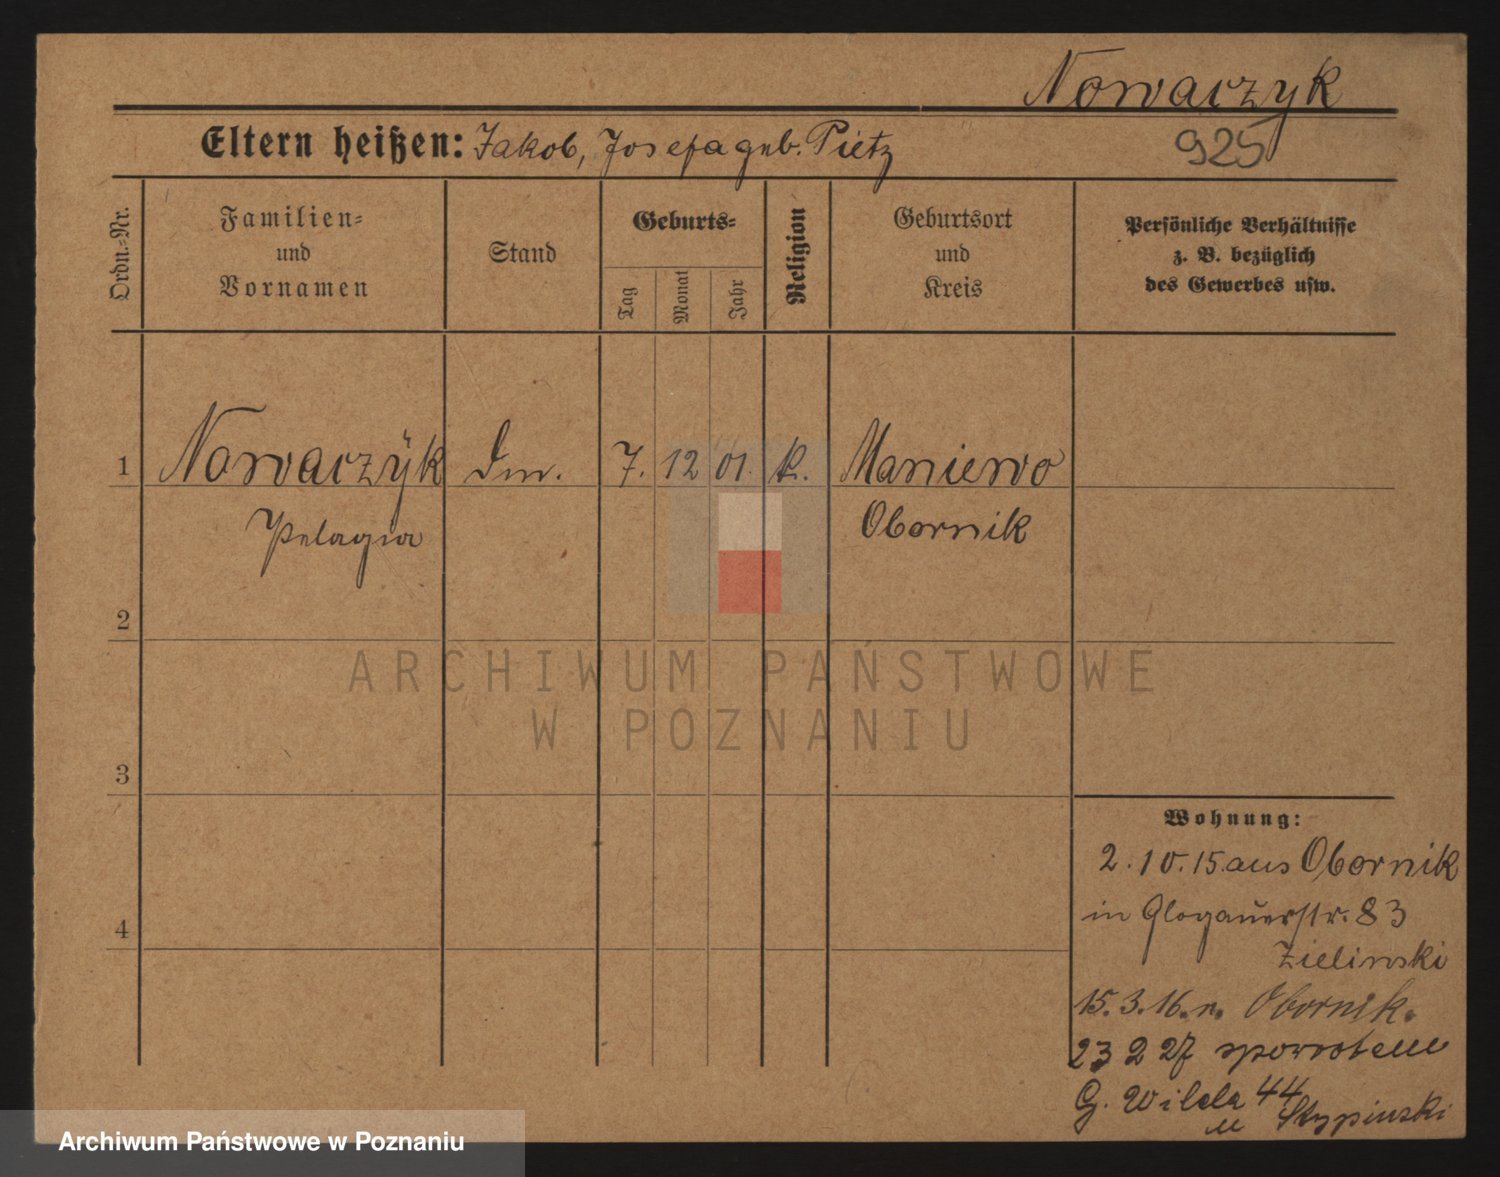 Nowaczyk
Eltern heißen: Jakob, Josefa geb. Pietz
925
Ordn.=Nr.
Familien=
und
Vornamen
Stand
Geburts=
Tag
Monat
Jahr
Religion
Geburtsort
und
Kreis
Persönliche Verhältnisse
z. B. bezüglich
des Gewerbes usw.
1 Nowaczÿk Dm. 7. 12 01. k. Maniewo
Pelagia Obornik
2
ARCHIWUM PAŃSTWOWE
W POZNANIU
3
Wohnung:
2.10.15. aus Obornik
in Glogauerstr. 83
4
Zielinski
15.3.16. n. Obornik.
23 2 27 spowrotem
G. Wilda 44
u Stypinski
Archiwum Państwowe w Poznaniu